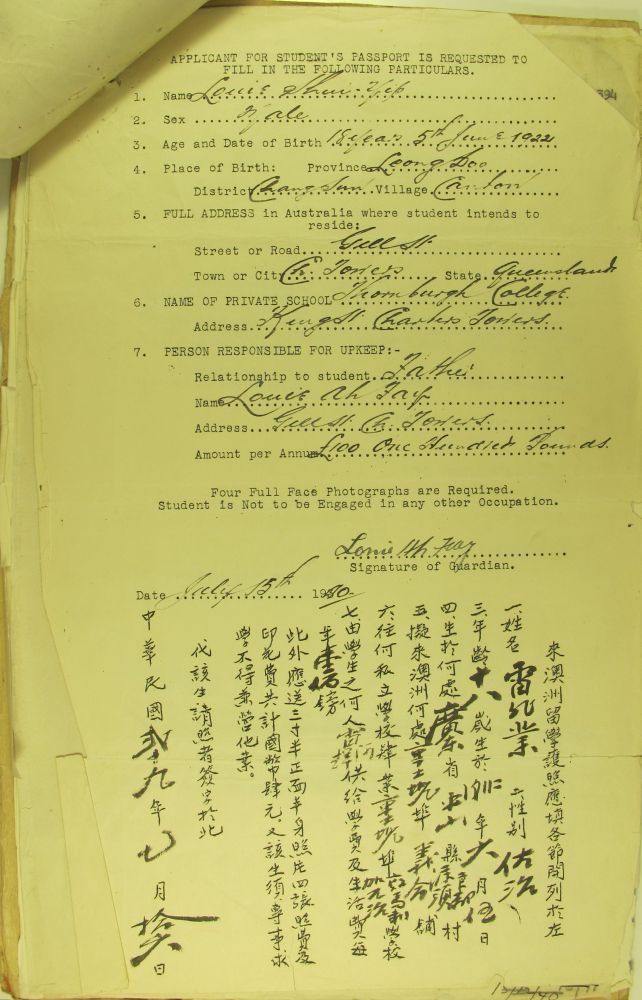 APPLICANT FOR STUDENT'S PASSPORT IS REQUESTED TO
FILL IN THE FOLLOWING PARTICULARS.
1. Name Louie Shui-Yip
2. Sex Male
3. Age and Date of Birth 18 years 5th June 1922
4. Place of Birth: Province Loong Doo
District Chang Sun Village Canton
5. FULL ADDRESS in Australia where student intends to
reside:
Street or Road Gill St.
Town or City Ch. Towers State Queensland
6. NAME OF PRIVATE SCHOOL Thornburgh College
Address King St. Charters Towers
7. PERSON RESPONSIBLE FOR UPKEEP:-
Relationship to student Father
Name Louie Ah Fay
Address Gill St. Ch. Towers.
Amount per Annum £100 One Hundred Pounds.
Four Full Face Photographs are Required.
Student is Not to be Engaged in any other Occupation.
Louie Ah Fay
Signature of Guardian.
Date July 15th 1940
來澳洲留學護照應填各節開列於左
一、姓名 雷 業 二、性別
三、年齡 十八 歲生於 年 六 月 伍 日
四、生於何處 廣東 省 縣 村
五、擬來澳洲何處 埠 舖
六、往何私立學校肄業 埠 學校
七、由學生之何人 供給學費及生活費每
年 壹佰 鎊
此外應送三寸半正面半身照片四張照費及
印花費共計國幣肆元、又該生須專事求
學不得兼營他業。
代該生請照者簽字於此
中華民國 貳十九 年 七 月 拾 日